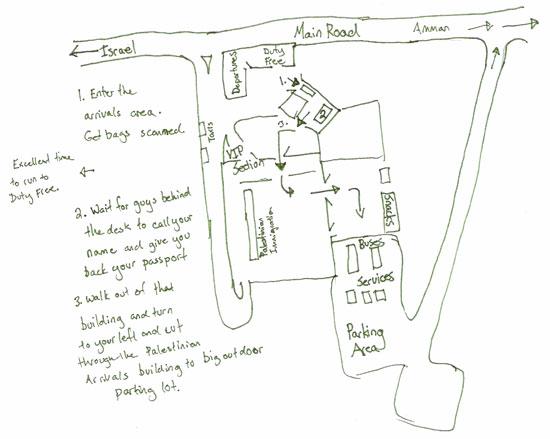 Israel
Main Road
Amman
Departures
Duty
Free
1. Enter the
arrivals area.
Get bags scanned.
1.
2
3.
Taxis
VIP
Section
Excellent time
to run to
Duty Free.
2. Wait for guys behind
the desk to call your
name and give you
back your passport
Palestinian
Immigration
Snacks
Buses
Services
Parking
Area
3. Walk out of that
building and turn
to your left and cut
through the Palestinian
Arrivals building to big outdoor
parting lot.